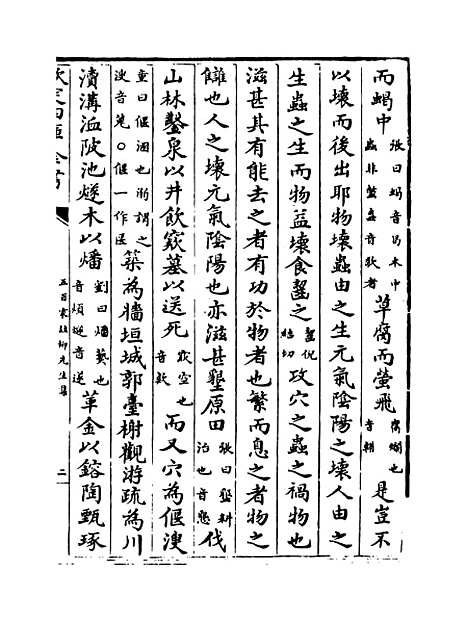 而蝎中張曰蝎音曷木中蟲非蠆蟲音歇者草腐而螢飛腐爛也音輔是豈不
以壞而後出耶物壞蟲由之生元氣陰陽之壞人由之
生蟲之生而物益壞食齧之齧倪結切攻穴之蟲之禍物也
滋甚其有能去之者有功於物者也繁而息之者物之
讎也人之壞元氣陰陽也亦滋甚墾原田張曰墾耕治也音懇伐
山林鑿泉以井飲窾墓以送死窾空也音款而又穴為偃溲
童曰偃溷也所謂之溲音蒐○偃一作匽築為牆垣城郭臺榭觀游疏為川
瀆溝洫陂池燧木以燔劉曰燔爇也音煩燧音遂革金以鎔陶甄琢
欽定四庫全書
五百家註柳先生集
二